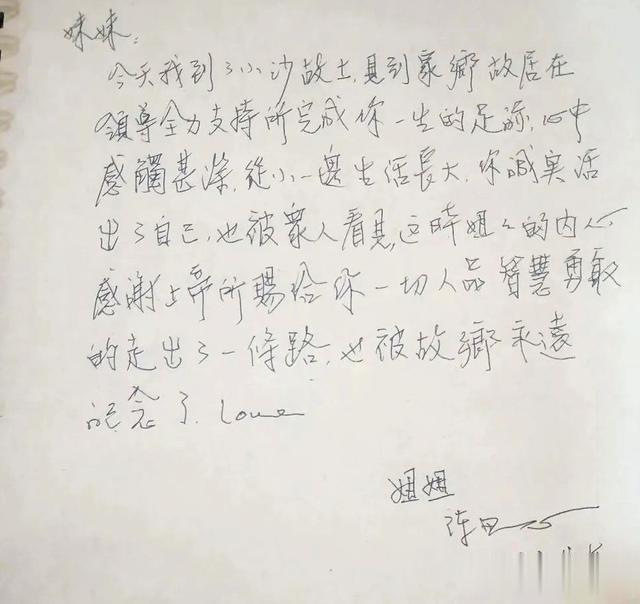 妹妹:
今天我到了小沙故土,見到家鄉故居在
領導全力支持所完成你一生的足跡,心中
感觸甚深,從小一邊生活長大,你誠实活
出了自己,也被眾人看見,这時姐々的内心
感谢上帝所賜给你一切人品智慧勇敢
的走出了一條路,也被故鄉永遠
记念了. Love
姐姐
陳田心